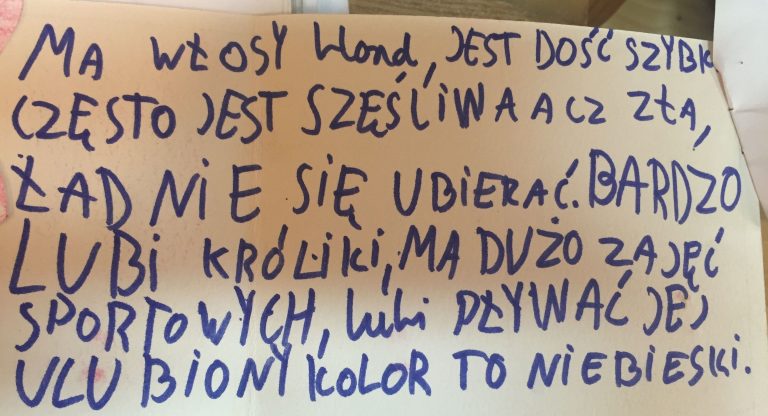 MA WŁOSY blond, JEST DOŚĆ SZYBK
CZĘSTO JEST SZĘŚLIWA A CZ ZŁA,
ŁAD NIE SIĘ UBIERAĆ. BARDZO
LUBI KRÓLIKI, MA DUŻO ZAJĘĆ
SPORTOWYCH, lubi PŁYWAĆ JEJ
ULUBIONY KOLOR TO NIEBIESKI.